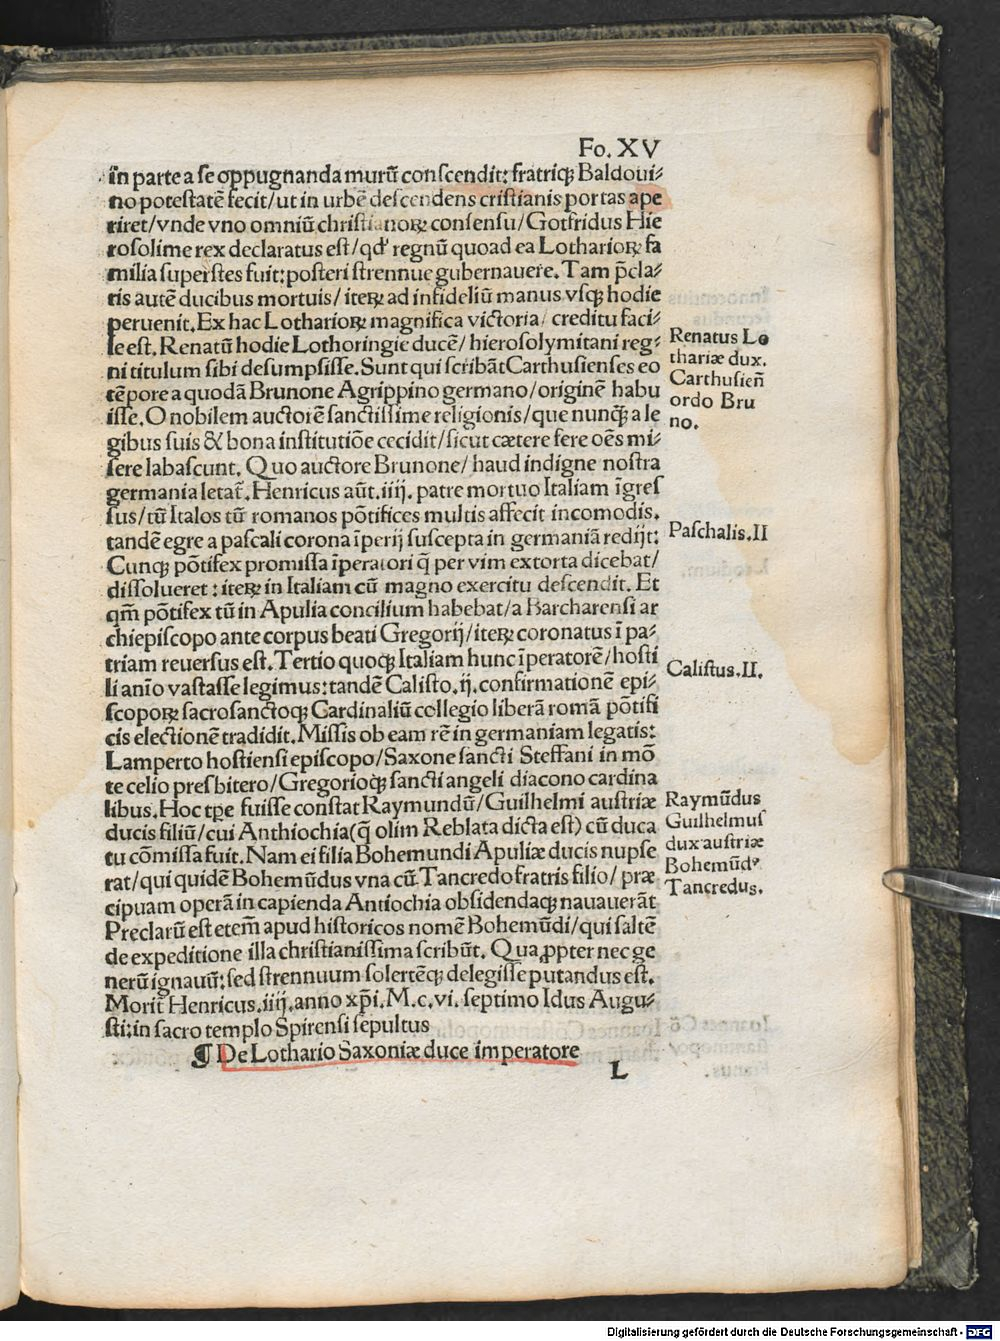 Fo. XV
in parte a se oppugnanda murū conscendit: fratriqꝫ Baldoui⸗
no potestatē fecit/ut in urbē descendens cristianis portas ape
riret/vnde vno omniū christianoꝝ consensu/Gotfridus Hie
rosolime rex declaratus est/qđ regnū quoad ea Lotharioꝝ fa
milia superstes fuit: posteri strennue gubernauere. Tam p̄cla⸗
ris autē ducibus mortuis/iteꝝ ad infideliū manus vsqꝫ hodie
peruenit. Ex hac Lotharioꝝ magnifica victoria/ creditu faci⸗
le est. Renatū hodie Lothoringie ducē/hierosolymitani reg⸗
ni titulum sibi desumpsisse. Sunt qui scribāt Carthusienses eo
tēpore a quodā Brunone Agrippino germano/originē habu
isse. O nobilem auctorē sanctissime religionis/que nunqꝫ̄ a le
gibus suis & bona institutiōe cecidit/sicut cætere fere oēs mi⸗
sere labascunt. Quo auctore Brunone/haud indigne nostra
germania letat̄. Henricus aūt. iiij. patre mortuo Italiam īgres
sus/tū Italos tū romanos pōtifices multis affecit incomodis.
tandē egre a pascali corona īperij suscepta in germaniā redijt:
Cunqꝫ pōtifex promissa īperatori q̄ per vim extorta dicebat/
dissolueret: iteꝝ in Italiam cū magno exercitu descendit. Et
qm̄ pōtifex tū in Apulia concilium habebat/a Barcharensi ar
chiepiscopo ante corpus beati Gregorij/iteꝝ coronatus ī pa⸗
triam reuersus est. Tertio quoqꝫ Italiam hunc īperatorē/hosti
li anīo vastasse legimus: tandē Calisto. ij. confirmationē epi⸗
scopoꝝ sacrosanctoqꝫ Cardinaliū collegio liberā romā pōtifi
cis electionē tradidit. Missis ob eam rē in germaniam legatis:
Lamperto hostiensi episcopo/Saxone sancti Steffani in mō
te celio presbitero/Gregorioqꝫ sancti angeli diacono cardina
libus. Hoc tꝑe fuisse constat Raymundū/Guilhelmi austriæ
ducis filiū/cui Anthiochia (q̄ olim Reblata dicta est) cū duca
tu cōmissa fuit. Nam ei filia Bohemundi Apuliæ ducis nupse
rat/qui quidē Bohemūdus vna cū Tancredo fratris filio/præ
cipuam operā in capienda Antiochia obsidendaqꝫ nauauerāt
Preclarū est etem̄ apud historicos nomē Bohemūdi/qui saltē
de expeditione illa christianissima scribūt. Qua ꝓpter nec ge
nerū ignauū: sed strennuum solertēqꝫ delegisse putandus est.
Morit̄ Henricus. iiij. anno xp̄i. M.c.vi. septimo Idus Augu⸗
sti: in sacro templo Spirensi sepultus
¶ De Lothario Saxoniæ duce imperatore
L
Renatus Lo
thariæ dux.
Carthusien̄
ordo Bru
no.
Paschalis. II
Calistus. II.
Raymūdus
Guilhelmus
dux austriæ
Bohemūdꝰ
Tancredus.
Digitalisierung gefördert durch die Deutsche Forschungsgemeinschaft - DFG